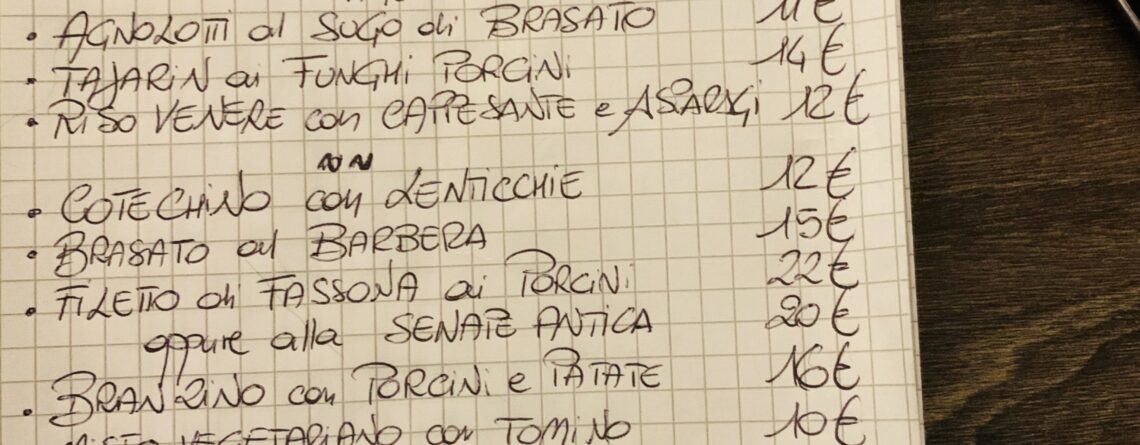 • AGNOLOTTI al SUGO di BRASATO 11€
• TAJARIN ai FUNGHI PORCINI 14€
• RISO VENERE con CAPPESANTE e ASPARAGI 12€
• COTECHINO con LENTICCHIE 12€
• BRASATO al BARBERA 15€
• FILETTO di FASSONA ai PORCINI 22€
oppure alla SENAPE ANTICA 20€
• BRANZINO con PORCINI e PATATE 16€
MISTO VEGETARIANO con TOMINO 10€